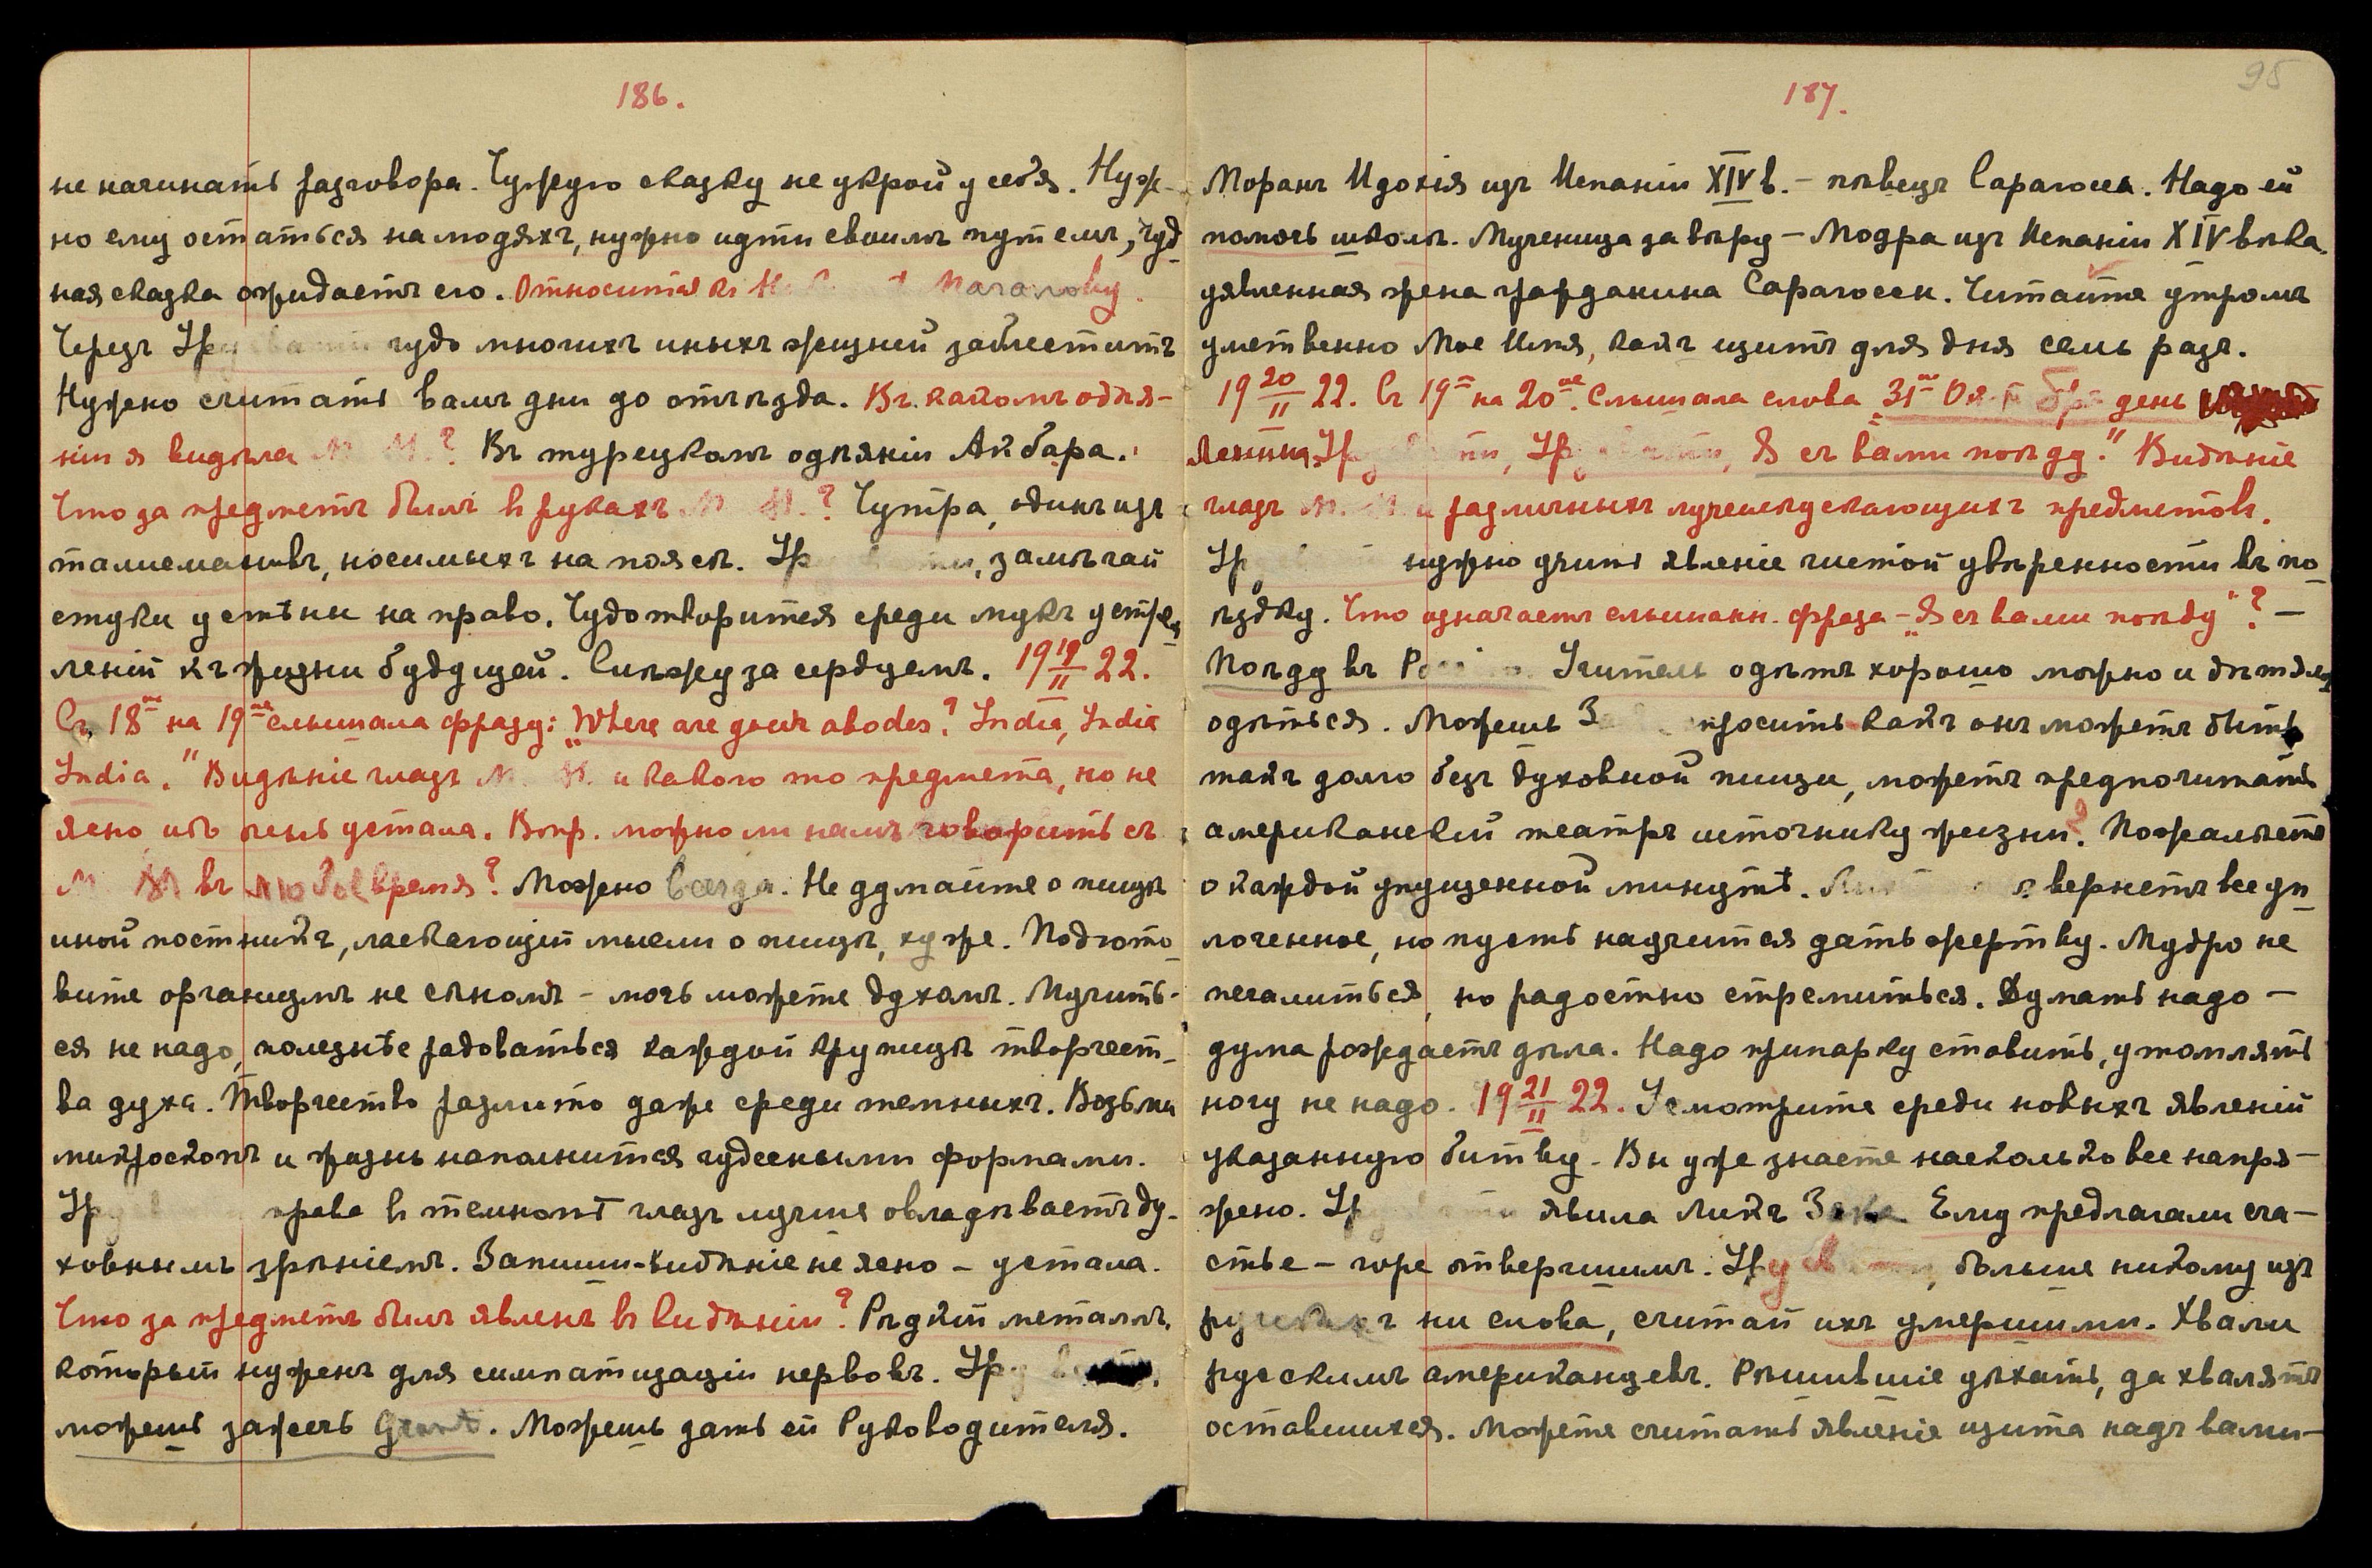 186.
не начинать разговора. Чужую сказку не укрой у себя. Нуж-
но ему остаться на людяхъ, нужно идти своимъ путемъ, чуд-
ная сказка ожидаетъ его. Относится къ
Черезъ чудо многихъ иныхъ жизней заблеститъ
Нужно считать вамъ дни до отъѣзда. Въ какомъ одѣя-
нiи я видѣла М. М.? Въ турецкомъ одѣянiи Акбара.
Что за предметъ былъ в рукахъ М. М.? Чутра, одинъ изъ
талисмановъ, носимыхъ на поясѣ. замѣчай
стуки у стѣны на право. Чудо творится среди мукъ устрем
ленiй къ жизни будущей. Слѣжу за сердцемъ. 19 19/II 22.
Съ 18го на 19ое слышала фразу: "Where are your abodes? India, India
India." Видѣнiе глазъ М. М. и какого то предмета, но не
ясно, ибо очень устала. Вопр. можно ли намъ говорить съ
М. М въ любое время? Можно всегда. Не думайте о пищѣ
иной постникъ, ласкающiй мысли о пищѣ, хуже. Подгото-
вите организмъ не сѣномъ - мочь можете духомъ. Мучить-
ся не надо, полезнѣе радоваться каждой крупицѣ творчест-
ва духа. Творчество разлито даже среди темныхъ. Возьми
микроскопъ и жизнь наполнится чудесными формами.
права в темнотѣ глазъ лучше овладѣваетъ ду-
ховнымъ зрѣнiемъ. Запиши - видѣнiе не ясно - устала.
Что за предметъ былъ явленъ в видѣнiи? Рѣдкiй металлъ,
который нуженъ для симпатизацiи нервовъ.
можешь зажечь Grant. Можешь дать ей Руководителя.
187.
95
Моранъ Идохiя изъ Испанiи XIV в. - пѣвецъ Сарагоса. Надо ей
помочь школѣ. Мученица за вѣру - Модра изъ Испанiи XIV вѣка,
уявленная жена гражданина Сарагоссы. Читайте утромъ
умственно Мое Имя, какъ щитъ для дня семь разъ.
19 20/II 22. Съ 19го на 20ое. Слышала слова "31го Октября день
Ленина, Я съ вами поѣду." Видѣнiе
глазъ М. М. и различныхъ лучеиспускающихъ предметовъ.
нужно учить явленiе чистой увѣренности въ по-
ѣздку. Что означаетъ слышанн. фраза - "Я съ вами поѣду"? -
Поѣду въ Россiю. Учитель одѣтъ хорошо можно и дѣтямъ
одѣться. Можешь спросить какъ онъ можетъ быть
такъ долго безъ духовной пищи, можетъ предпочитать
американскiй театръ источнику жизни? Пожалѣетъ
о каждой упущенной минутѣ. вернетъ все уп-
лоченное, но пусть научится дать жертву. Мудро не
печалиться, но радостно стремиться. Думать надо -
дума рождаетъ дѣла. Надо припарку ставить, утомлять
ногу не надо. 19 21/II 22. Усмотрите среди новыхъ явленiй
указанную битву. Вы уже знаете насколько все напря-
жено. явила ликъ Зака. Ему предлагали сча-
стье - горе отвергшимъ. больше никому изъ
русскихъ ни слова, считай ихъ умершими. Хвали
русскимъ американцевъ. Рѣшившiе уѣхать, да хвалятъ
оставшихся. Можете считать явленiе щита надъ вами -